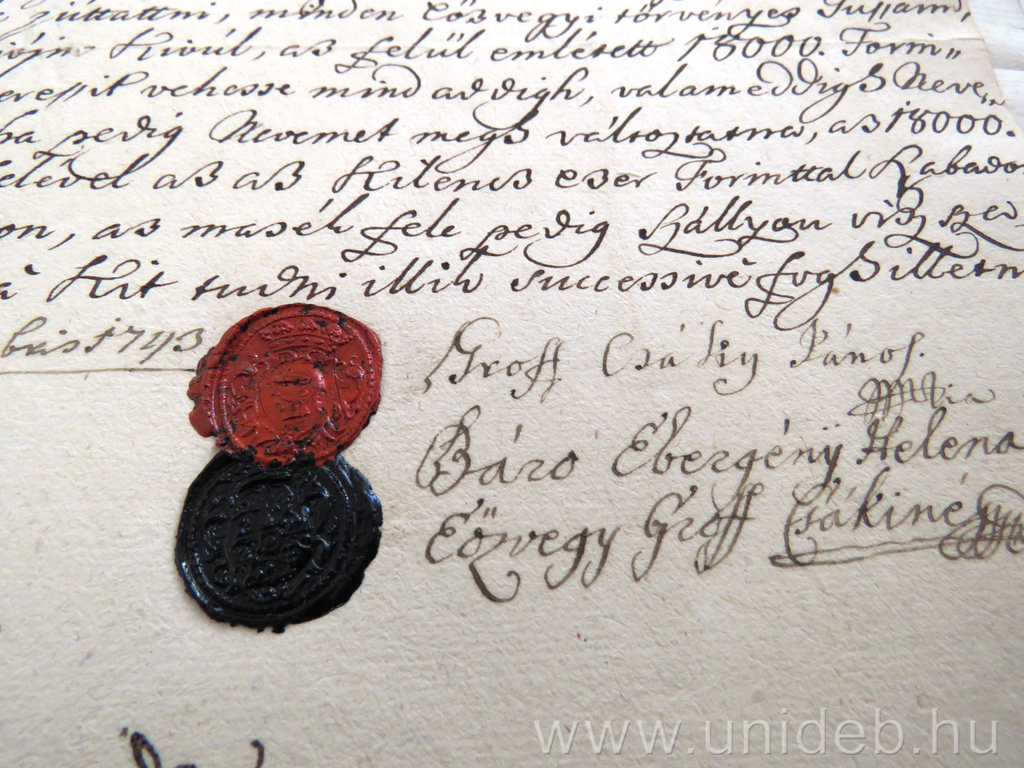 juttattni, minden Eösvegyi törvényes Jussaim,
Kivül, az felül emlétett 18000. Forin„
vehesse mind addigh, valameddigh Neve„
ha pedig Nevemet megh változtatna, az 18000.
felével az az Kilencz ezer Forinttal szabadon
on, az masék fele pedig szállyon visz sza„
à Kit tudni illik successivè fogh illetni
bris 1743
Groff Csáky János.
Báro Ebergényÿ Helena
Eözvegy Groff Csákiné
www.unideb.hu